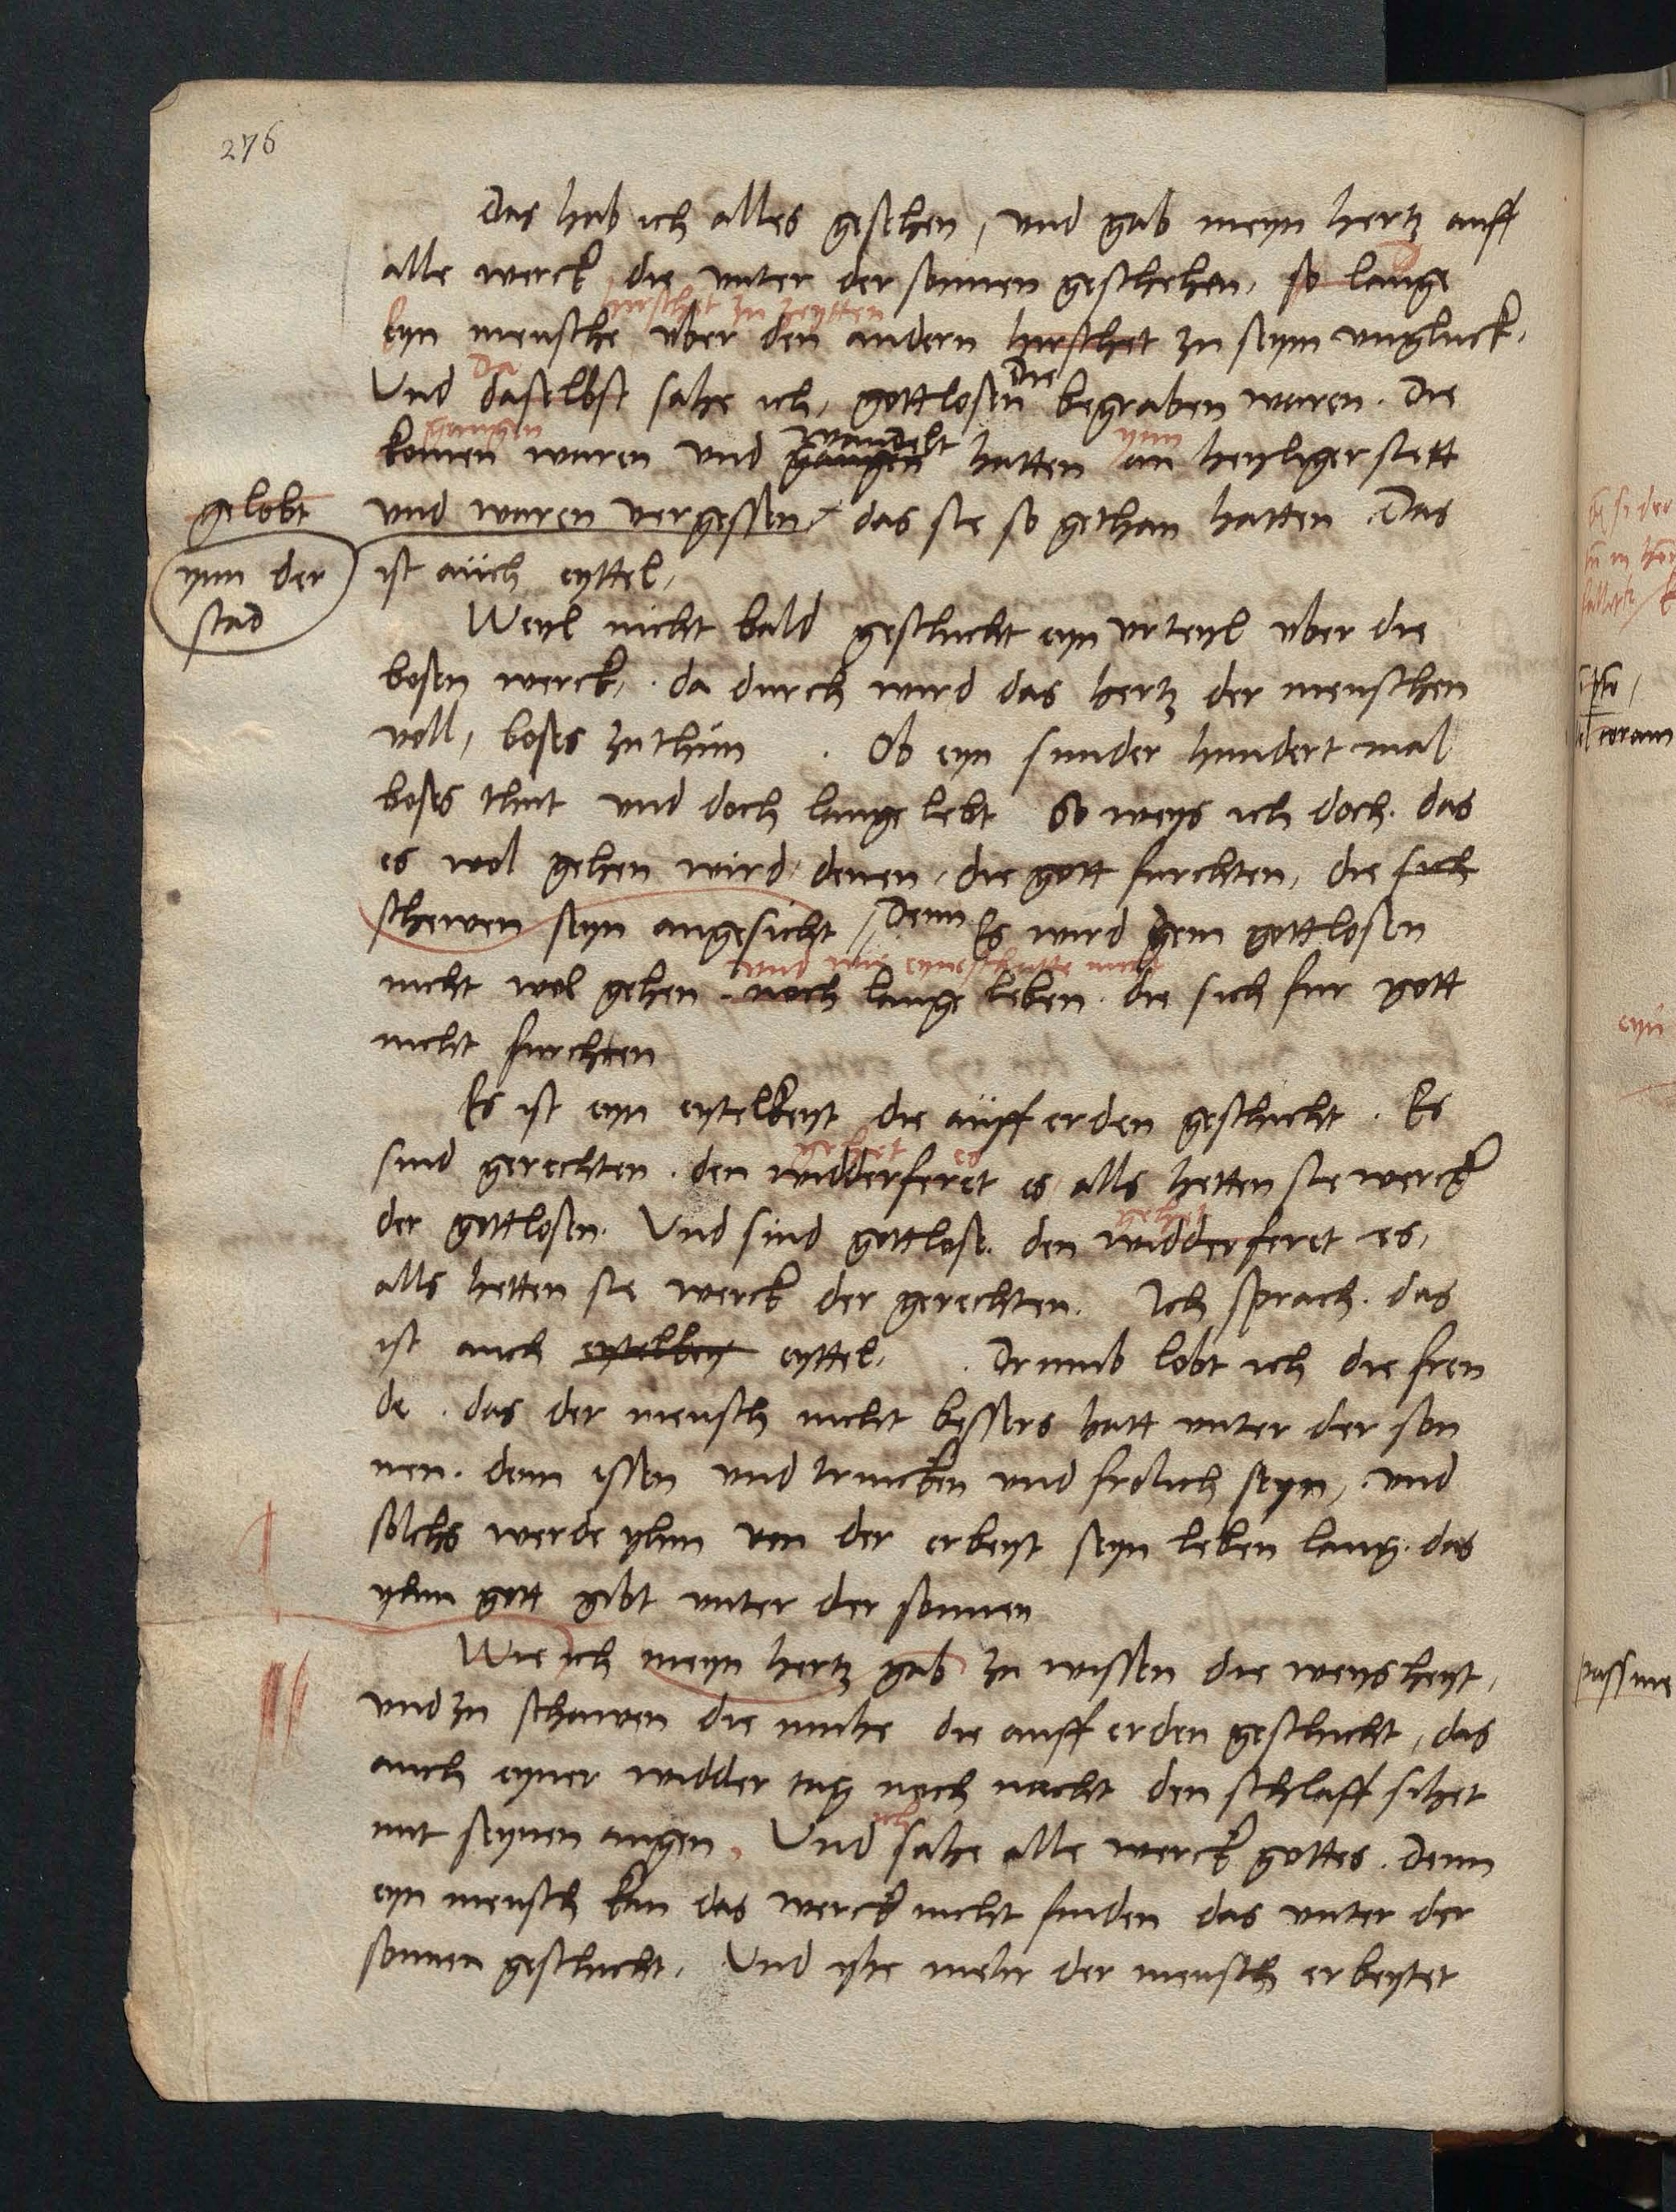 276
Das hab ich alles gesehen, und gab meyn hertz auff
alle werck die unter der sonnen geschehen, so lange
hirschet zu zeytten
Eyn mensche uber den andern hirschet zu seym ungluck.
Da
Die
Und daselbst sahe ich, gottlosen begraben waren. Die
gangen
wandelt
ynn
komen waren und gangen hatten an heyliger stett
gelobt
und waren vergessen das sie so gethan hatten Das
ynn der
stad
ist auch eyttel,
Weyl nicht bald geschicht eyn urteyl uber die
bosen werck, da durch wird das hertz der menschen
voll, boses zu thun . Ob eyn sunder hundert mal
boses thut und doch lange lebt So weys ich doch. das
es wol gehen wird denen, die gott furchten, die sich
schewen seyn angesicht Denn Es wird dem gottlosen
und wie eyn schatte nicht
nicht wol gehen noch lange leben. die sich fur gott
nicht furchten
Es ist eyn eytelkeyt die auff erden geschicht. Es
gehet es
sind gerechten. den widderferet es alls hetten sie werck
gehet
der gottlosen. Und sind gottlose. den widderferet es,
alls hetten sie werck der gerechten. Ich sprach. das
ist auch eytelkey eyttel. . Drumb lobt ich die freu
de . das der mensch nicht bessers hatt unter der son
nen. denn essen und trincken und frolich seyn, und
solchs werde yhm von der erbeyt seyn leben lang. das
yhm gott gibt unter der sonnen
Wie ich meyn hertz gab zu wissen die weysheyt,
und zu schawen die muhe die auff erden geschicht, das
auch eyner widder tag noch nacht den schlaff sihet
ich
mit seynen augen. Und sahe alle werck gottes. Denn
eyn mensch kan das werck nicht finden das unter der
sonnen geschicht. Und yhe mehr der mensch erbeytet